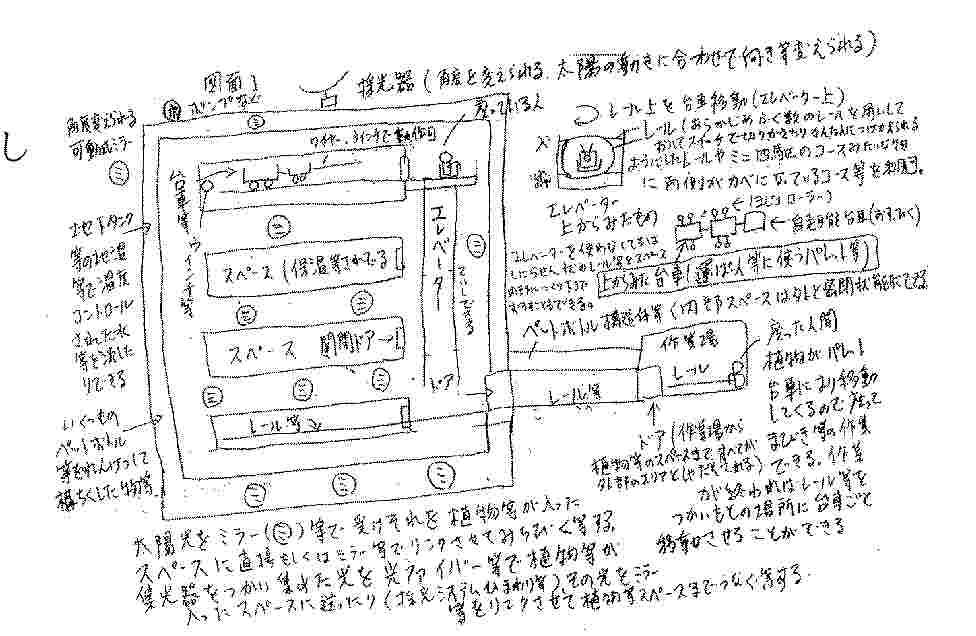 図面1
採光器(角度を変えられる、太陽の動きに合わせて向き等変えられる)
ポンプなど
角度変えられる
可動式ミラー
座っている人
ワイヤー、ウインチで
台車等
ウインチ等
エレベーター
スペース(保温等されてる)
スペース 開閉ドア→
ドア
レール等
地下タンク
等の地温
等で温度
コントロール
された水
等を流した
りできる
いくつもの
ペットボトル
等をれんけつして
構ちくした物等
レール上を台車移動(エレベーター上)
レール(あらかじめふく数のレールを用意して
おいてスイッチで切りかえたりかんたんにつけかえられる
ようにしたレールやミニ四駆のコースみたいな物
に両側がカベになっているコース等を利用。
エレベーター
上からみたもの
(ヨコにローラー)
自走可能台車
エレベーターを使わなくても
できる。
上からみた台車(運ぱん等に使うパレット等)
ペットボトル構造体等(内部スペースは外と密閉状態にできる
作業場
レール
レール等
座った人間
植物がパレット
台車により移動
してくるので座って
まびき等の作業
できる。作業
が終わればレール等を
つかいもとの場所に台車ごと
移動させることができる
ドア(作業場から
植物等のスペースまですべてが
外部のエリアと
太陽光をミラー(ミ)等で受けそれを植物等が入った
スペースに直接もしくはミラー等でリンクさせてみちびく等する
集光器をつかい集めた光を光ファイバー等で植物等が
入ったスペースに送ったり(採光システムひまわり等)その光をミラー
等をリンクさせて植物等スペースまでつなぐ等する。